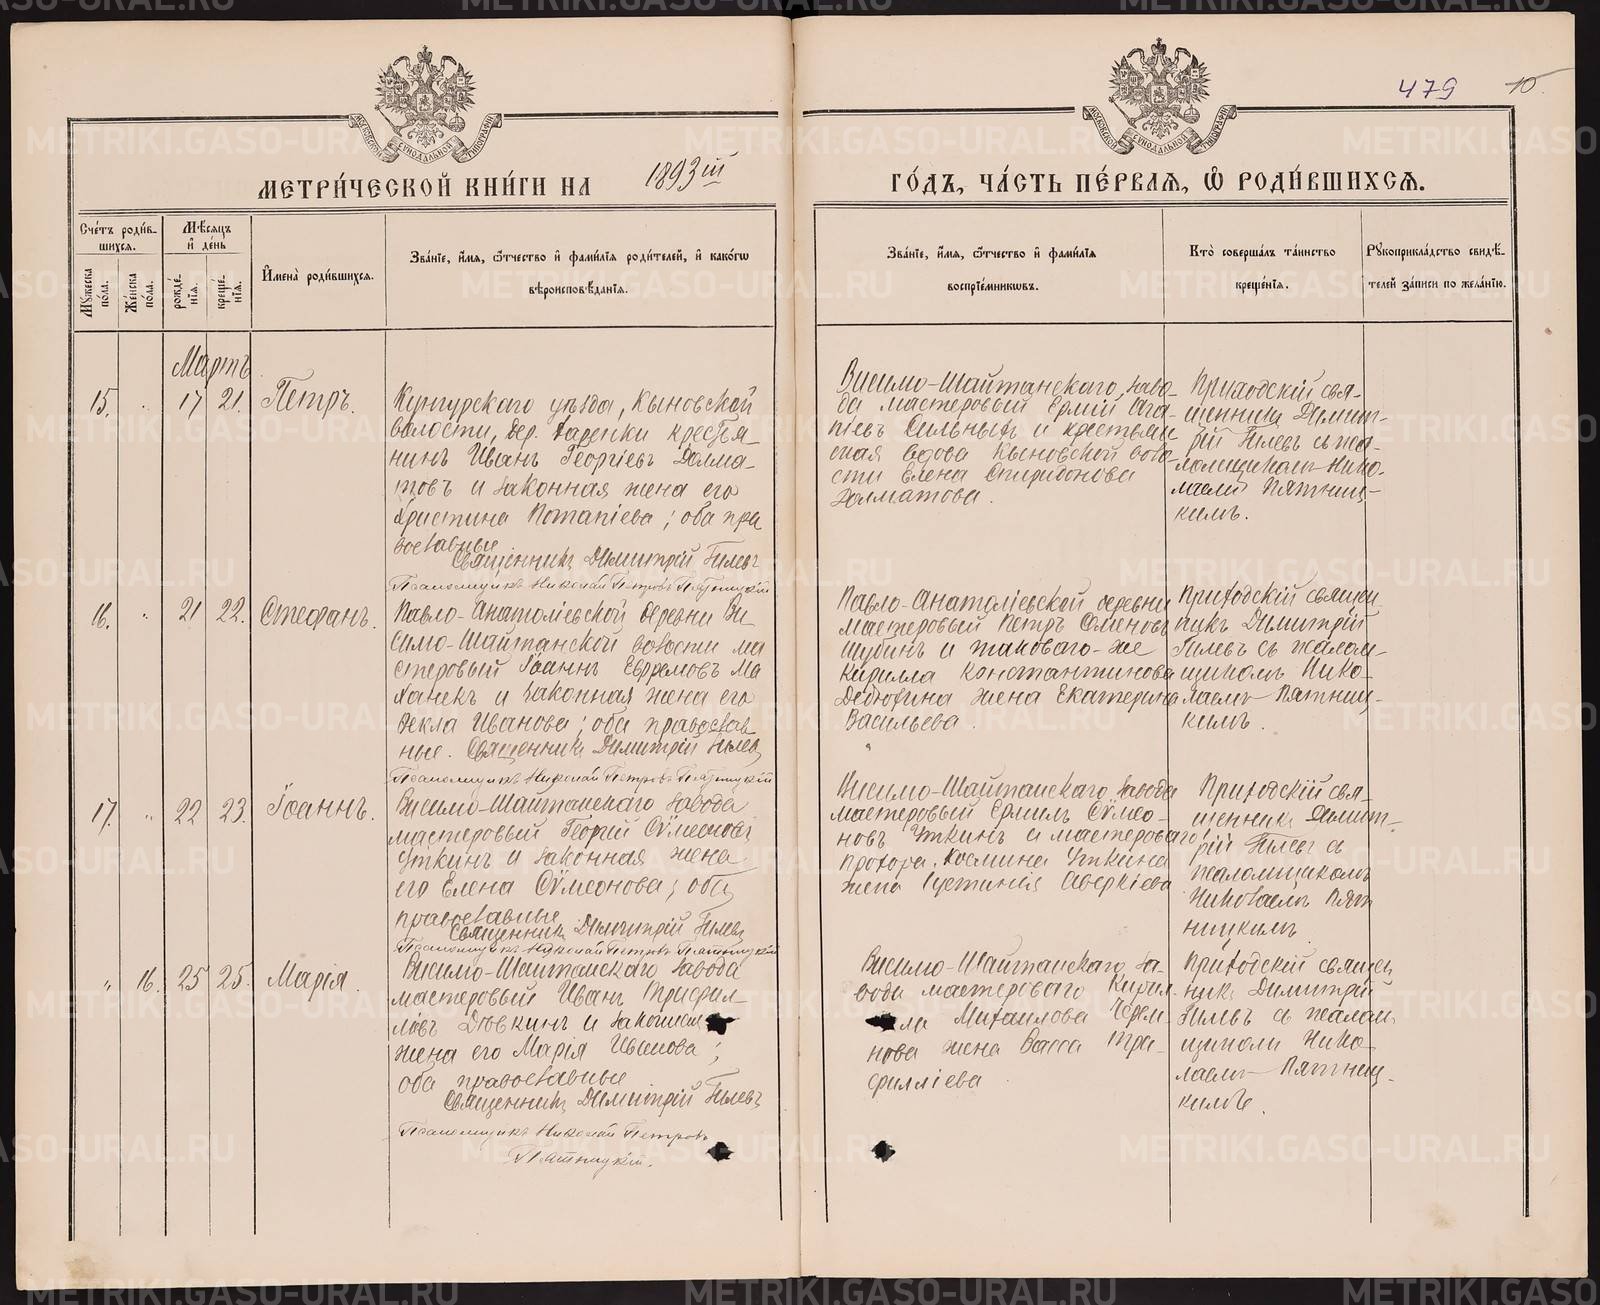 479 10.
МОСКОВСКОЙ СѴНОДАЛЬНОЙ ТИПОГРАФІИ
МОСКОВСКОЙ СѴНОДАЛЬНОЙ ТИПОГРАФІИ
МЕТРИ́ЧЕСКОЙ КНИ́ГИ НА 1893ій ГО́ДЪ, ЧА́СТЬ ПЕ́РВАѦ, Ѡ҆ РОДИ́ВШИХСѦ.
Сче́тъ роди́в-
шихся.
Му́жеска по́ла.
Же́нска по́ла.
Мѣ́сяцъ
и҆ де́нь
рожде́нїя.
креще́нїя.
И҆мена̀ роди́вшихся.
Зва́нїе, и҆́мя, ѻ҆́тчество и҆ фами́лїя роди́телей, и҆ како́гѡ
вѣроисповѣ́данїя.
Зва́нїе, и҆́мя, ѻ҆́тчество и҆ фами́лїя
воспрїе́мникѡвъ.
Кто̀ соверша́лъ та́инство
креще́нїя.
Рꙋкоприкла́дство свидѣ́-
телей за́писи по жела́нїю.
Мартъ
15. " 17 21. Петръ.
Кунгурскаго уѣзда, Кыновской
волости, дер. крестья-
нинъ Иванъ Георгіевъ Долма-
товъ и законная жена его
Христина Потапіева; оба пра
вославные
Священникъ Димитрій Гилевъ
Псаломщикъ Николай Петровъ Пятницкій
Висимо-Шайтанскаго заво-
да мастеровый Ермій Ага-
піевъ Сильныхъ и крестьян
ская вдова Кыновской воло-
сти Елена Спиридонова
Долматова.
Приходскій свя-
щенникъ Димит-
рій Гилевъ съ пса-
ломщикомъ Нико-
лаемъ Пятниц-
кимъ.
16. " 21 22. Стефанъ.
Павло-Анатоліевской деревни Ви-
симо-Шайтанской волости ма
стеровый Іоаннъ Ефремовъ Ма
ханекъ и законная жена его
Текла Иванова; оба православ
ные. Священникъ Димитрій Гилевъ
Псаломщикъ Николай Петровъ Пятницкій
Павло-Анатоліевской деревни
мастеровый Петръ Семеновъ
Шубинъ и таковаго-же
Кирилла Константинова
Дедюхина жена Екатерина
Васильева.
"
Приходскій священ
никъ Димитрій
Гилевъ съ псалом-
щикомъ Нико-
лаемъ Пятниц-
кимъ.
17. " 22 23. Іоаннъ.
Висимо-Шайтанскаго завода
мастеровый Георгій Сѵмеоновъ
Уткинъ и законная жена
его Елена Сѵмеонова; оба
православные
Священникъ Димитрій Гилевъ
Псаломщикъ Николай Петровъ Пятницкій
Висимо-Шайтанскаго завода
мастеровый Ермилъ Сѵмео-
новъ Уткинъ и мастероваго
Прохора Космина Уткина
жена Іустинія Аверкіева
Приходскій свя-
щенникъ Димит-
рій Гилевъ съ
псаломщикомъ
Николаемъ Пят
ницкимъ
" 16. 25 25. Марія.
Висимо-Шайтанскаго завода
мастеровый Иванъ Трифил-
ловъ Дювкинъ и законная
жена его Марія Иванова;
оба православные
Священникъ Димитрій Гилевъ
Псаломщикъ Николай Петровъ
Пятницкій.
Висимо-Шайтанскаго за-
вода мастероваго Кирил-
ла Михаилова Черем-
нова жена Васса Три-
филліева
Приходскій священ
никъ Димитрій
Гилевъ съ псалом
щикомъ Нико-
лаемъ Пятниц-
кимъ.
METRIKI.GASO-URAL.RU